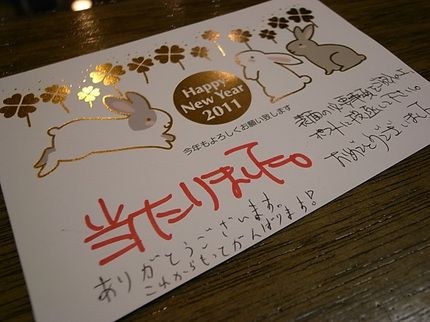 Happy
New Year
2011
今年もよろしくお願い致します
の必要事項を
ポストに
おめでとうございました
当たりました。
ありがとうございます。
これからもってがんばります!